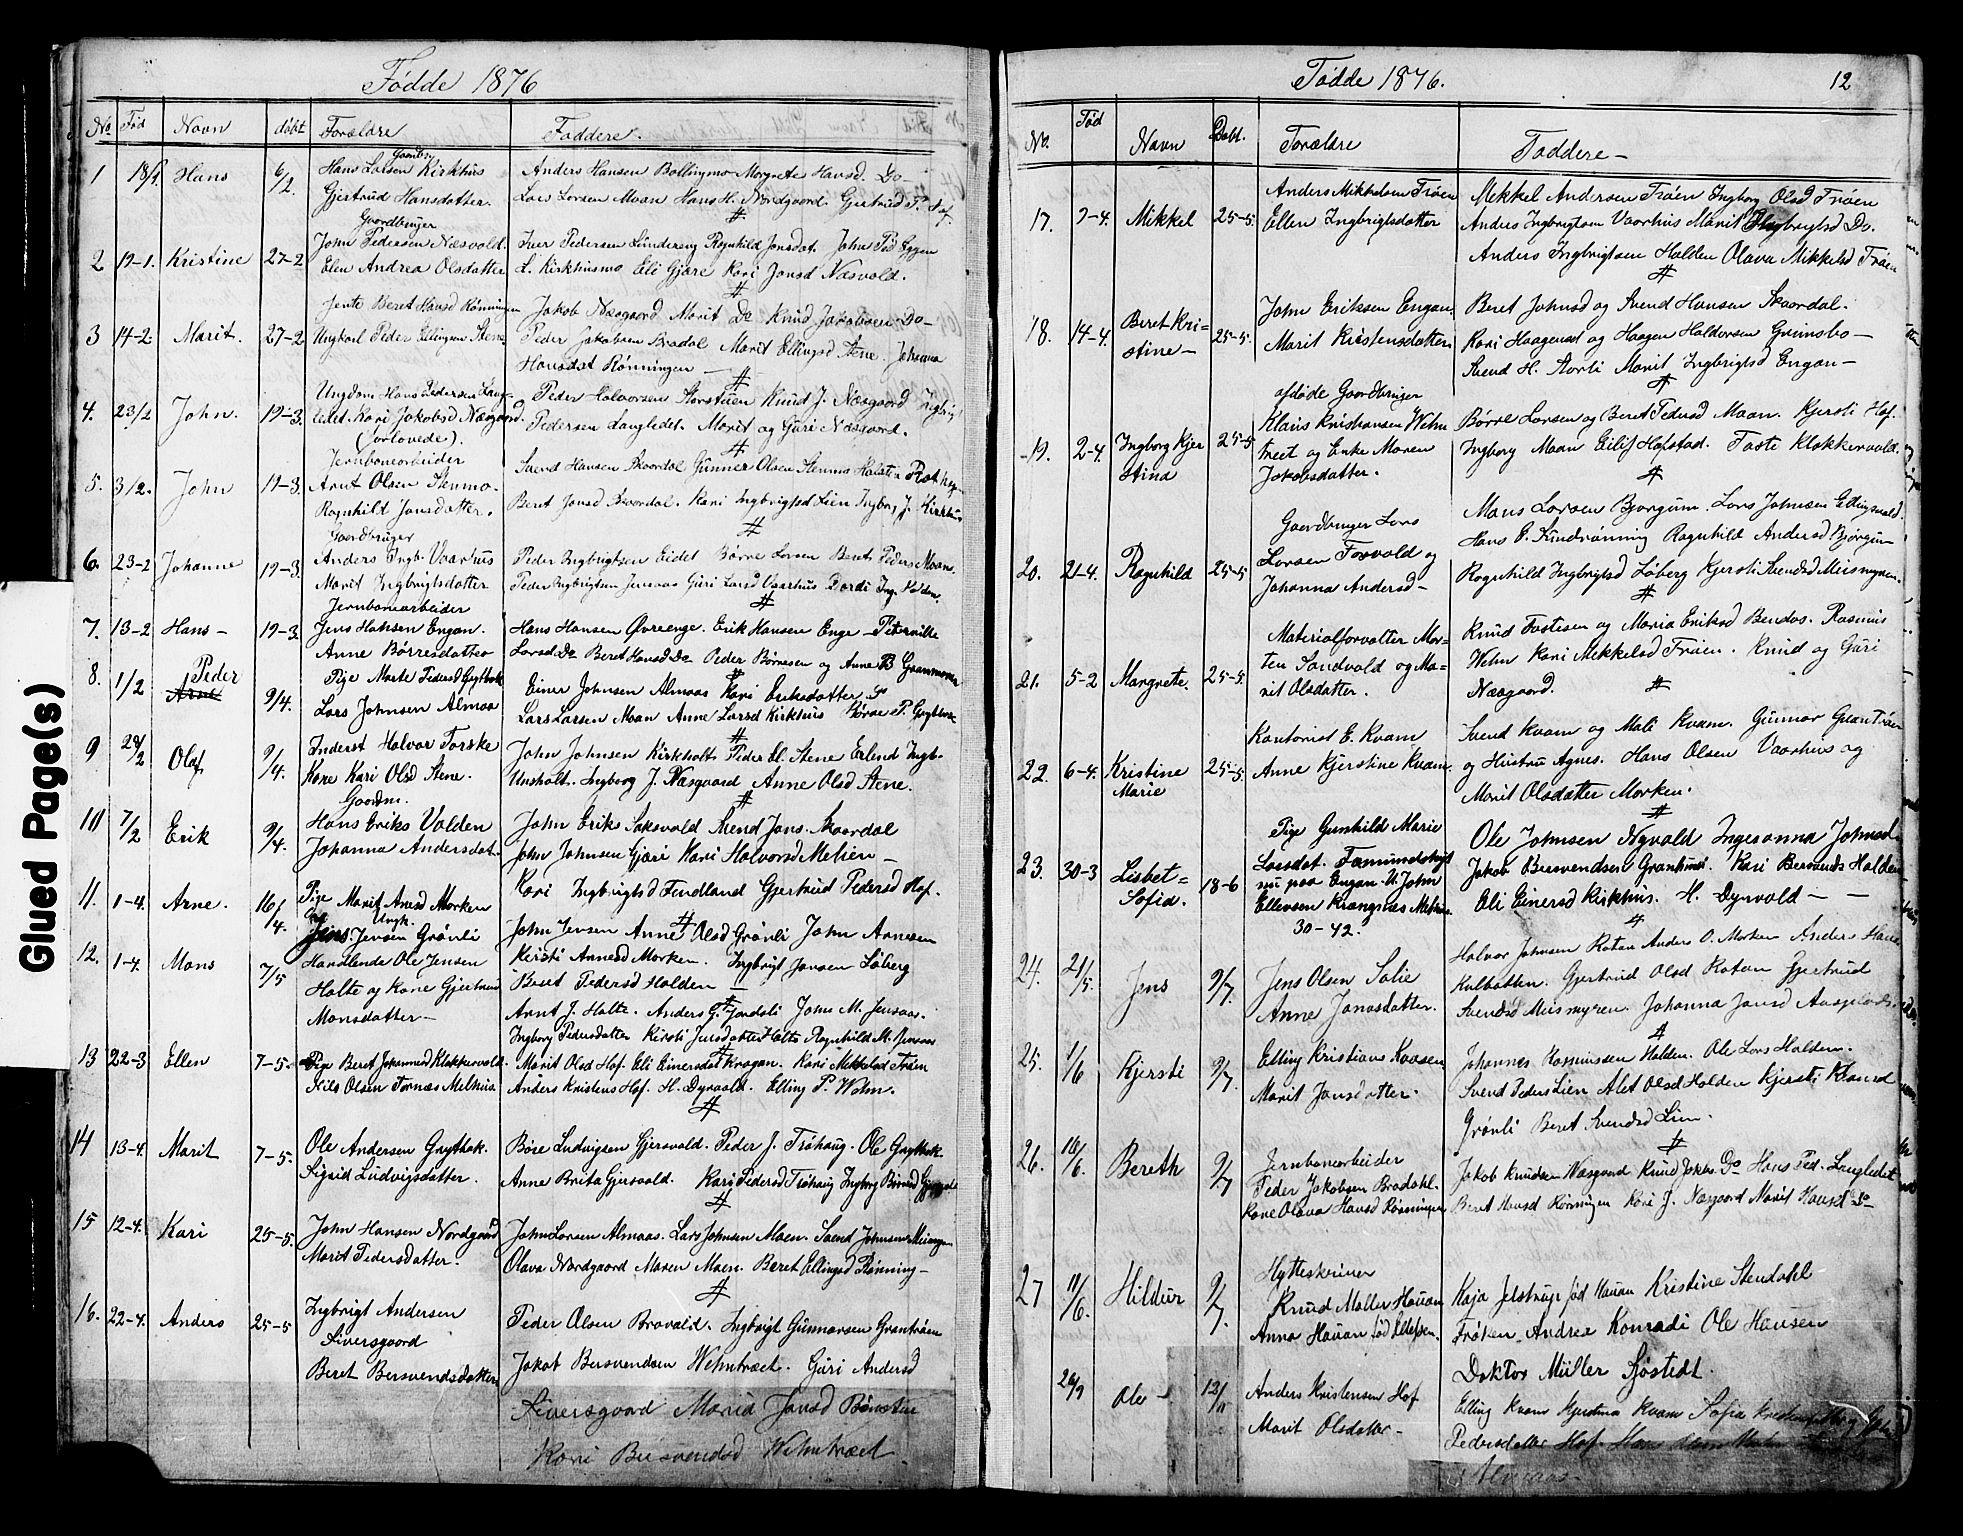 Glued Page(s)
Fødde 1876
No Fød Navn döbt Forældre Faddere.
1 18/1 Hans 6/2 Gaardbr. Hans Larsen Kirkhus Anders Hansen Bollingmo Margrete Hansd. Do-
Gjertrud Hansdatter. Lars Larsen Moan Hans H. Nordgaard. Gjertrud P.
Gaardbruger
John Pedersen Næsvold. Iver Pedersen Ragnhild Jonsdat. John Ped Eggen
2 19-1. Kristine 27-2 Elen Andrea Olsdatter L. Kirkhusmo Eli Gjære Kari Jonsd Næsvold.
Jente Beret Hansd Rønningen Jakob Næsgaard Marit Do Knud Jakobsen Do-
3 14-2. Marit. 27-2 Ungkarl Peder Ellingsen Stene Peder Jakobsen Bradal Marit Ellingsd Stene. Johanna
Hansdat Rønningen —
Ungdom Hans Pedersen Lang- Peder Halvorsen Storstuen Knud J. Næsgaard Ingbrigt
4. 23/2 John. 19-3. ledet. Kari Jakobsd Næsgaard Pedersen Langledet. Marit og Guri Næsgaard.
(forlovede).
Jernbanearbeider Svend Hansen Skaardal Gunner Olsen Stenmo
5. 3/2. John 19-3. Arnt Olsen Stenmo. Beret Jonsd Skaardal. Kari Ingbrigtsd Lien Ingborg J. Kirkhus
Ragnhild Jonsdatter.
Gaardbruger
6. 23-2 Johanne 19-3. Anders Ingb. Vaarhus Peder Ingbrigtsen Eidet Børre Larsen Berit Peders Moan
Marit Ingbrigtsdatter Peder Ingbrigtsen Jensaas Guri Larsd Vaarhus Dordi Ing. Holden.
Jernbanearbeider
7. 13-2 Hans- 19-3. Jens Hansen Engan. Hans Hansen Øvreenge. Erik Hansen Enge-
Anne Børresdatter Larsd Do Beret Hansd Do Peder Børresen og Anne B Grammoen
8. 1/2 Peder Arnt 9/4. Pige Marte Pedersd Grytbak Einer Johnsen Almaas Kari Eriksdatter Do
Lars Johnsen Almaa Lars Larsen Moan Anne Larsd Kirkhus Børre P. Grytbak
9 28/2 Olaf 9/4. Inderst Halvor Torske John Johnsen Kirkholt Peder El. Stene Erlend Ingb.
Kone Kari Olsd Stene. Unsholt. Ingborg J. Næsgaard Anne Olsd Stene.
Gaardm.
10 7/2 Erik 9/4. Hans Eriks Volden John Eriks Saksvold Svend Jons. Skaardal
Johanna Andersdat. John Johnsen Gjæri Kari Halvorsd Melien-
11. 1-4. Arne. 16/4. Pige Marit Arnsd Morken Kari Ingbrigtsd Findland Gjertrud Pedersd Hof.
Ungk. Jens Jensen Grönli John Jensen Anne Olsd Grönli John Arnesen
12. 1-4. Mons 7/5 Handlende Ole Jensen Kirsti Arnesd Morken. Ingbrigt Jonsen Løberg
Holte og Kone Gjertrud Beret Pedersd Holden —
Monsdatter- Arnt J. Holte. Anders G. Jordsli Jons M. Jensaas.
Ingborg Pedersdatter Kirsti Jensdatter Holte Ragnhild M. Jensaas
13 22-3 Ellen 7-5. Pige Beret Johannesd Klokkervold. Marit Olsd Hof. Eli Einersdat Krogan. Kari Mekkelsd Trøen
Nils Olsen Tornæs Melhus. Anders Kristens Hof. H. Dyrvold. Elling P. Wolm.
14 13-4. Marit 7-5. Ole Andersen Grytbak. Böre Ludvigsen Gjersvold. Peder J. Trøhaug. Ole Grytbak
Sigrid Ludvigsdatter. Anne Brita Gjersvold. Kari Pedersd Trøhaug Ingborg
15 12-4. Kari 25-5. John Hansen Nordgaard John Larsen Almaas. Lars Johnsen Moen. Svend Johnsen
Marit Pedersdatter. Olava Nordgaard Maren Moen. Beret Ellingsd Rønning-
16. 22-4. Anders 25-5 Ingbrigt Andersen Peder Olsen Bravald. Ingbrigt Gunnarsen Grantrøen
Siversgaard Jakob Bersvendsen Wehntræet. Guri Andersd
Beret Bersvendsdatter Siversgaard Marit Jonsd
Kari Bersvendsd Wehntræet
Fødde 1876. 12
No. Fød Navn Döbt. Forældre Faddere-
Anders Mikkelsen Trøen Mekkel Andersen Trøen Ingborg Olsd Trøen
17. 7-4. Mikkel 25-5. Ellen Ingbrigtsdatter Anders Ingbrigtsen Vaarhus Marit Ingbrigtsd Do.
Anders Ingbrigtsen Halden Olava Mikkelsd Trøen
John Eriksen Engan. Beret Johnsd og Svend Hansen Skaardal.
18. 14-4. Beret Kri-stine- 25-5. Marit Kristensdatter Kari Haagensd og Haagen Haldorsen Grinsbo-
Svend H. Storli Marit Ingbrigtsd Engan-
afdøde Gaardbruger
19. 2-4. Ingborg Kjerstina 25-5 Klaus Kristiansen Wehn- Børre Larsen og Beret Pedersd Moan. Kjersti Hof.
træet og Enke Maren Ingborg Moan Eilif Hofstad. Faste Klokkervold.
Jakobsdatter.
Gaardbruger Lars Mons Larsen Bjørgum. Lars Johnsen Ellingsvold.
Hans E. Sundrønning Ragnhild Andersd Bjørgum
20. 21-4. Ragnhild 25-5 Larsen Forvold og Ragnhild Ingbrigtsd Løberg Kjersti Svendsd Meismyren.
Johanna Andersd-
Materialforvalter Mor- Knud Fastesen og Maria Eriksd Bendos. Rasmus
21. 5-2 Margrete. 25-5. ten Sandvold og Ma- Wehn Kari Mekkelsd Trøen. Knud og Guri
rit Olsdatter. Næsgaard.
Kantorist E. Kvam Svend Kvam og Mali Kvam. Gunnar Grantrøen
22. 6-4. Kristine Marie 25-5 Anne Kjerstine Kvam. og Hustru Agnes. Hans Olsen Vaarhus og
Marit Olsdatter Morken.
Pige Gunhild Marie Ole Johnsen Nyvold Ingeranna Johnsd
23. 30-3 Lisbet= Sofid. 18-6 Larsdat. Jakob Bersvendsen Kari Bersvends Halden
nu paa Engan U. John Oli Einersd Kirkhus. H. Dyrvold —
Ellevsen Krangnæs Melhus.
30-42. Halvor Johnsen Roten Anders O. Morken Anders Hans
24. 21/5. Jens 9/7. Jens Olsen Solie Kulbotten. Gjertrud Olsd Rotan Gjertrud
Anne Jonasdatter. Svendsd Meismyren. Johanna Jonsd
25. 1/6 Kjersti 9/7. Elling Kristians Kaasen Johannes Rasmussen Halden. Ole Lars Haldem.
Marit Jonsdatter. Svend Peders Lien Alet Olsd Holden Kjersti
Grönli Beret Svendsd Lien.
26. 16/6. Bereth 9/7 Jernbanarbeider Jakob Knudsen Næsgaard Knud Jakobs. Do Hans Ped. Langledet
Peder Jakobsen Bradahl. Beret Hansd Rønningen Kari J. Næsgaard Marit Hansd Do-
Kone Olava Hansd Rønningen
Hytteskriver
27 11/6. Hildur 9/7. Knud Møller Hauan Kaja Jelstrup fød Hauan Kristine Stendahl
Anna Hauan fød Ellefsen. Frøken Andrea Konradi Ole Hansen
Doktor Müller Sjøstedt.
26/9 Ole- 12/11 Anders Kristensen Hof Elling Kvam Kjerstina Kvam Sofia
Marit Olsdatter- Pedersdatter Hof.
Almaas-